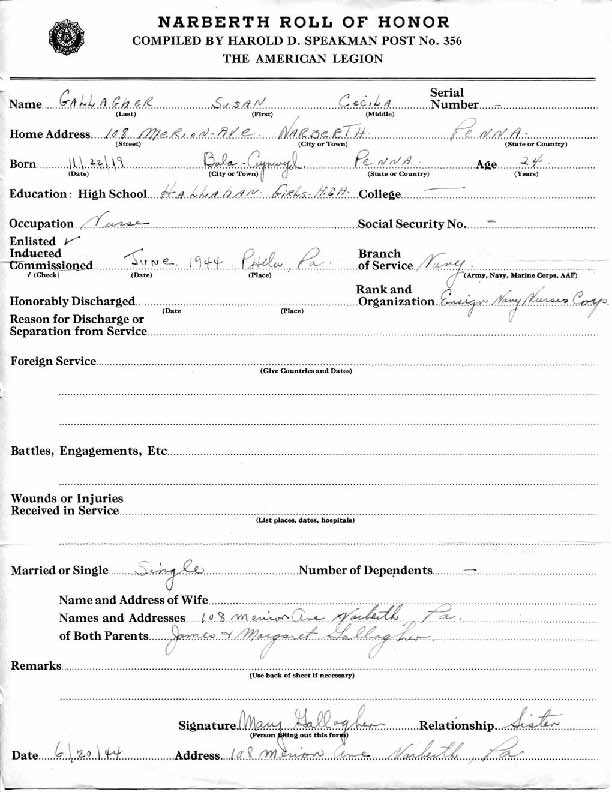 NARBERTH ROLL OF HONOR
COMPILED BY HAROLD D. SPEAKMAN POST No. 356
THE AMERICAN LEGION
Name GALLAGHER SUSAN CECILIA Serial Number -
(Last) (First) (Middle)
Home Address 108 MERION AVE. NARBERTH. PENNA.
(Street) (City or Town) (State or Country)
Born 11/22/19 Bala-Cynwyd PENNA. Age 24
(Date) (City or Town) (State or Country) (Years)
Education: High School HALLAHAN GIRLS HIGH College —
Occupation Nurse Social Security No. -
Enlisted ✓
Inducted
Commissioned June 1944 Phila, Pa. Branch of Service Navy
(Check) (Date) (Place) (Army, Navy, Marine Corps, AAF)
Honorably Discharged Rank and Organization Ensign Navy Nurses Corp
(Date (Place)
Reason for Discharge or
Separation from Service
Foreign Service
(Give Countries and Dates)
Battles, Engagements, Etc.
Wounds or Injuries
Received in Service
(List places, dates, hospitals)
Married or Single Single Number of Dependents -
Name and Address of Wife
Names and Addresses 108 Merion Ave Narberth, Pa.
of Both Parents James + Margaret Gallagher
Remarks
(Use back of sheet if necessary)
Signature Mary Gallagher Relationship Sister
(Person filling out this form)
Date 6/20/44 Address 108 Merion Ave Narberth, Pa